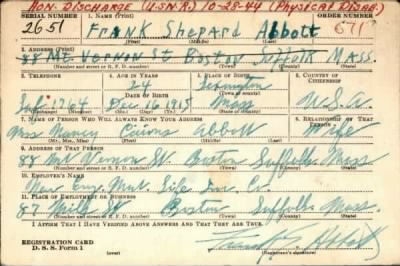 HON. DISCHARGE (U.S.N.R.) 10-28-44 (PHYSICAL DISAB.)
SERIAL NUMBER 1. NAME (Print) ORDER NUMBER
2651 FRANK Shepard Abbott
(First) (Middle) (Last)
2. ADDRESS (Print)
88 Mt. Vernon St Boston Suffolk MASS.
(Number and street or R. F. D. number) (Town) (County) (State)
3. TELEPHONE 4. AGE IN YEARS 5. PLACE OF BIRTH 6. COUNTRY OF CITIZENSHIP
Lexington
DATE OF BIRTH
1764 Dec 16 1915 Mass U.S.A.
(Exchange) (Number) (Mo.) (Day) (Yr.) (State or country)
7. NAME OF PERSON WHO WILL ALWAYS KNOW YOUR ADDRESS 8. RELATIONSHIP OF THAT PERSON
Nancy Cairns Abbott Wife
(Mr., Mrs., Miss) (First) (Middle) (Last)
9. ADDRESS OF THAT PERSON
88 Mt Vernon St. Boston Suffolk Mass
(Number and street or R. F. D. number) (Town) (County) (State)
10. EMPLOYER'S NAME
New Eng. Mut. Life Ins. Co.
11. PLACE OF EMPLOYMENT OR BUSINESS
87 Milk St Boston Suffolk Mass.
(Number and street or R. F. D. number) (Town) (County) (State)
I AFFIRM THAT I HAVE VERIFIED ABOVE ANSWERS AND THAT THEY ARE TRUE.
REGISTRATION CARD
D. S. S. Form 1
(Registrant's signature)